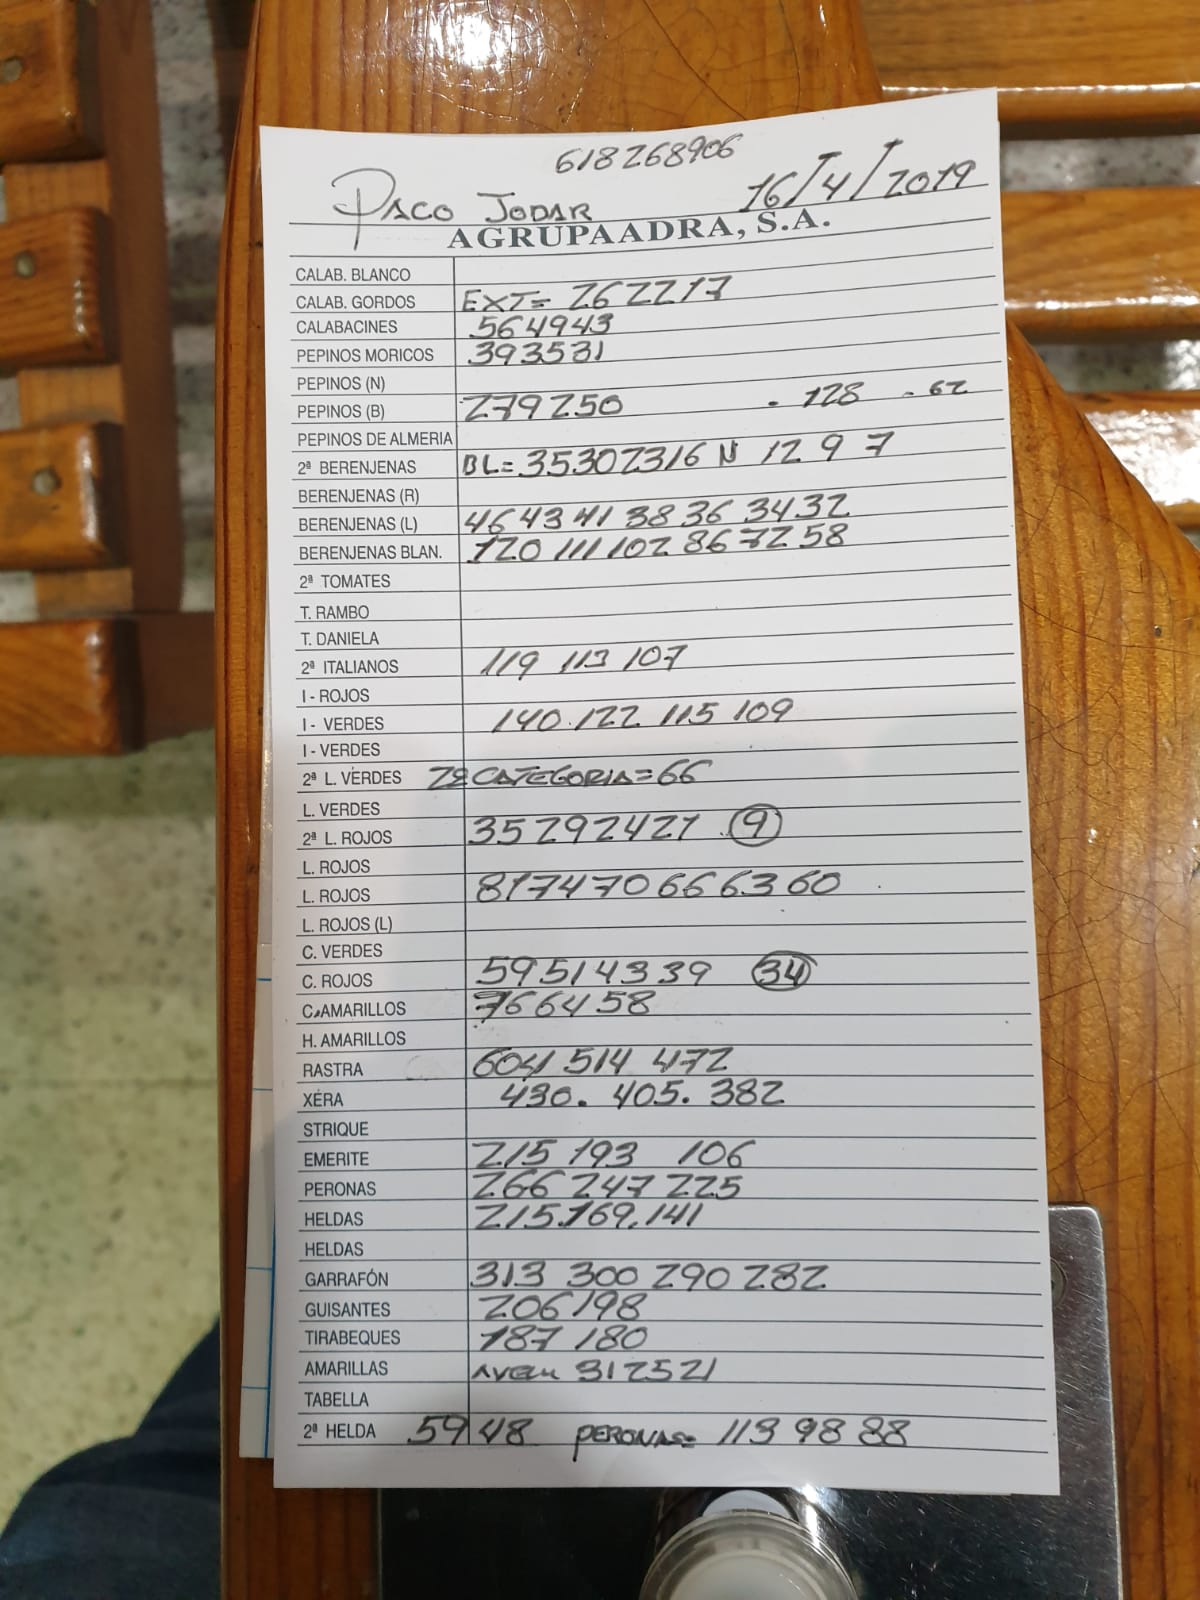 618268906
PACO JODAR 16/4/2019
AGRUPAADRA, S.A.
CALAB. BLANCO
CALAB. GORDOS EXT= 262217
CALABACINES 564943
PEPINOS MORICOS 393531
PEPINOS (N)
PEPINOS (B) 279250 . 128 . 62
PEPINOS DE ALMERIA
2ª BERENJENAS BL= 35302316 N 12 9 7
BERENJENAS (R)
BERENJENAS (L) 46 43 41 38 36 34 32
BERENJENAS BLAN. 120 111 102 86 72 58
2ª TOMATES
T. RAMBO
T. DANIELA
2ª ITALIANOS 119 113 107
I - ROJOS
I - VERDES 140.122 115 109
I - VERDES
2ª L. VERDES 2ª CATEGORIA = 66
L. VERDES
2ª L. ROJOS 35292421 9
L. ROJOS
L. ROJOS 817470666360
L. ROJOS (L)
C. VERDES
C. ROJOS 59514339 34
C. AMARILLOS 766458
H. AMARILLOS
RASTRA 604 514 472
XÉRA 430. 405. 382
STRIQUE
EMERITE 215 193 106
PERONAS 266 247 225
HELDAS 215.169.141
HELDAS
GARRAFÓN 313 300 290 282
GUISANTES 206 198
TIRABEQUES 187 180
AMARILLAS 312521
TABELLA
2ª HELDA 59 48 PERONAS= 113 98 88